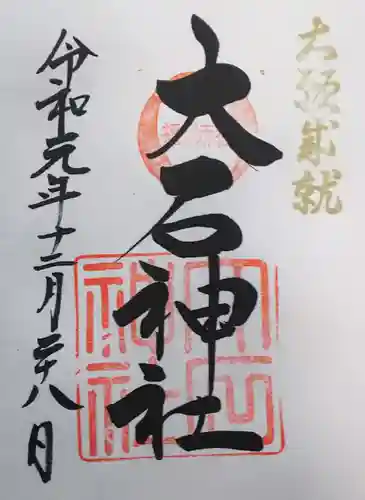 大願成就
大石神社
令和元年十二月二十八日